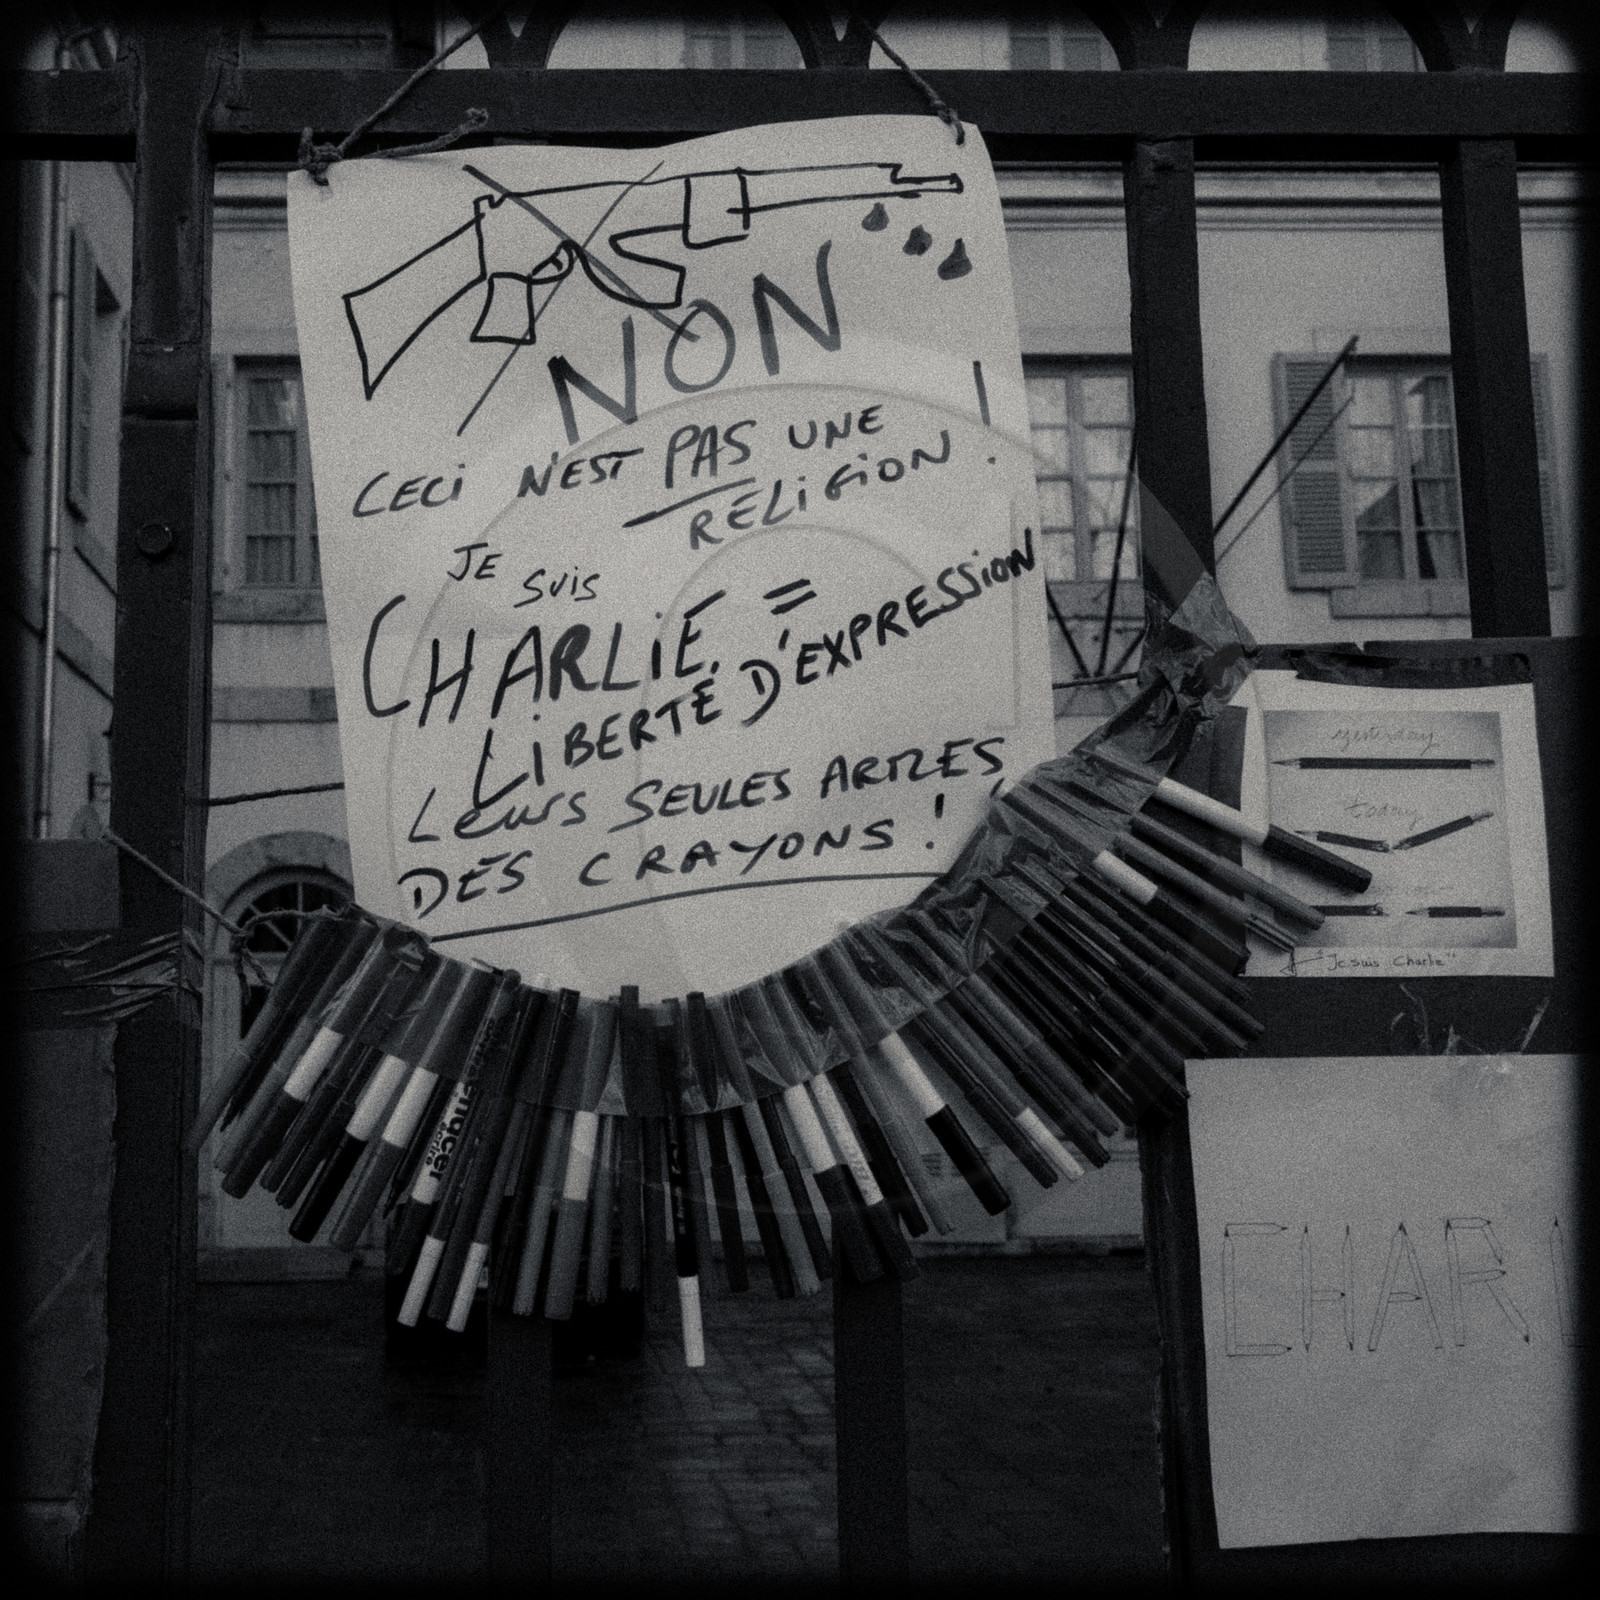 NON
CECI N'EST PAS UNE
RELIGION !
JE SUIS
CHARLIE =
LIBERTÉ D'EXPRESSION
Leurs SEULES ARMES
DES CRAYONS !
yesterday
today
"Je suis Charlie"
CHARL